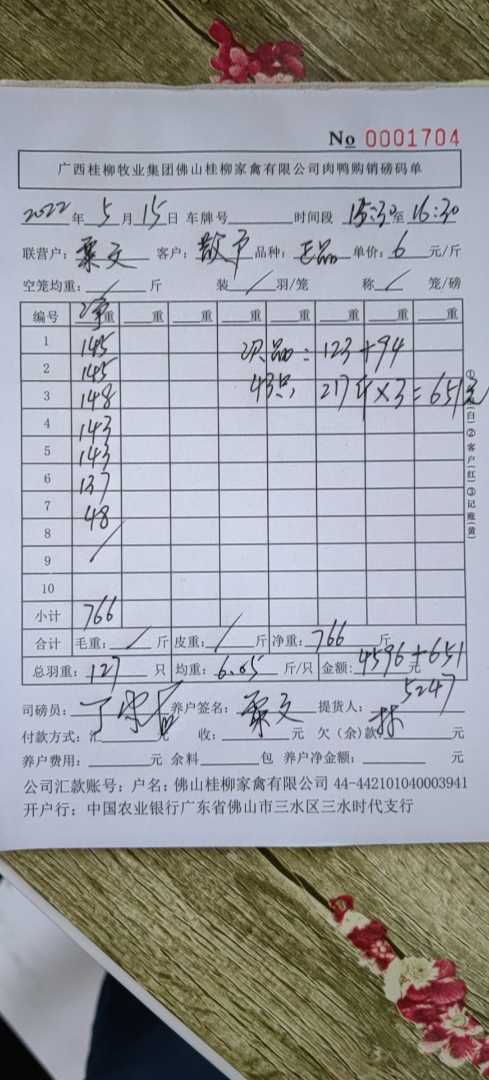 No 0001704
广西桂柳牧业集团佛山桂柳家禽有限公司肉鸭购销磅码单
2022年5月15日 车牌号 时间段 15:30至16:30
联营户: 覃文 客户: 散户 品种: 正品 单价: 6 元/斤
空笼均重: / 斤 装 / 羽/笼 称 / 笼/磅
编号 净重 重 重 重 重 重 重 重
1 145
2 145 次品: 123+94
3 148 43只 217斤×3=651元
4 143
5 143
6 137
7 48
8 /
9
10
小计 766
合计 毛重: / 斤 皮重: / 斤 净重: 766 斤
总羽重: 127 只 均重: 6.05 斤/只 金额: 4596+651 元
5247
司磅员: 养户签名: 覃文 提货人: 林
付款方式: 汇 元 收: 元 欠(余)款 元
养户费用: 元 余料 包 养户净金额: 元
公司汇款账号: 户名: 佛山桂柳家禽有限公司 44-442101040003941
开户行: 中国农业银行广东省佛山市三水区三水时代支行
(白)② 客户(红)③ 记账(黄)